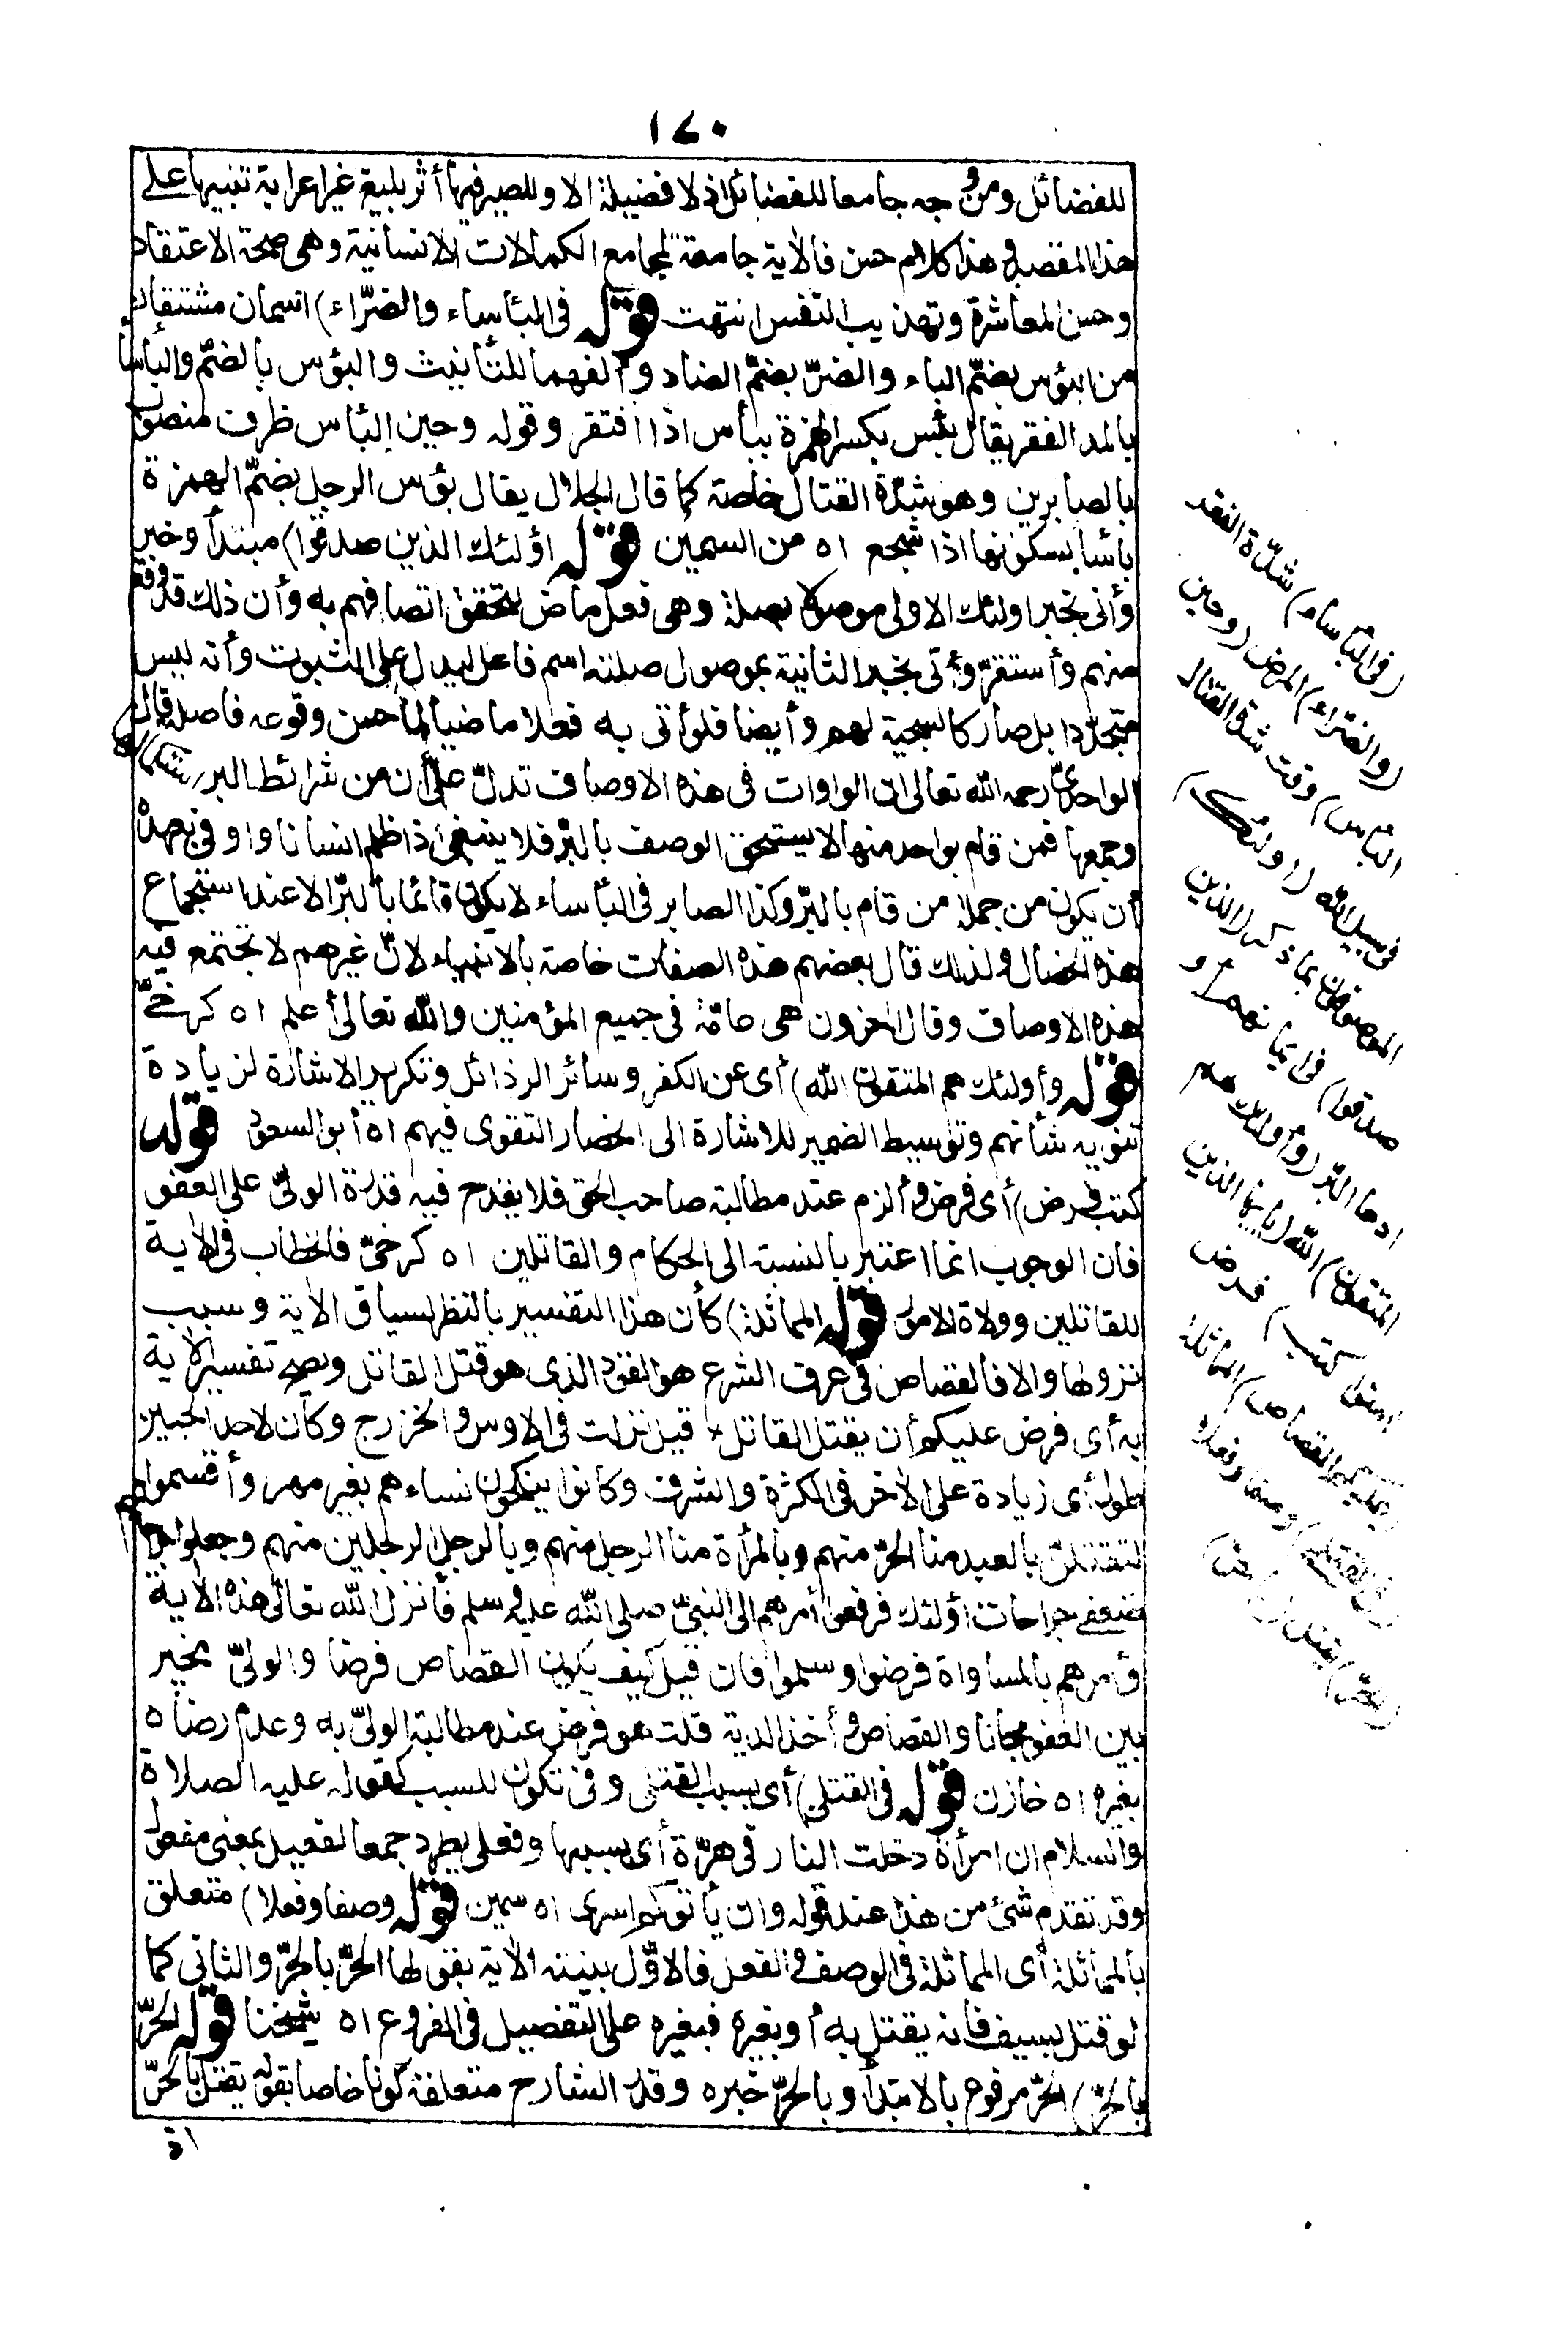 ١٧٠
للفضائل ومن وجه جامعا للفضائل اذ لا فضيلة الا وللصبر فيها أثر بليغ غير اعرابه تنبيها على
هذا المقصد وهذا كلام حسن فالآية جامعة لمجامع الكمالات الانسانية وهى صحة الاعتقاد
وحسن المعاشرة وتهذيب النفس انتهت قوله فى البأساء والضرّاء) اسمان مشتقان
من البؤس بضمّ الباء والضرّ بضمّ الضاد وألفهما للتأنيث والبؤس بالضمّ والبأساء
بالمد الفقر يقال بئس بكسر الهمزة يبأس اذا افتقر وقوله وحين البأس ظرف منصوب
بالصابرين وهو شدّة القتال خاصة كما قال الجلال يقال بؤس الرجل بضمّ الهمزة
بأسا بسكونها اذا شجع اه من السمين قوله اؤلئك الذين صدقوا) مبتدأ وخبر
وأتى بخبر اولئك الاولى موصولا بصلة وهى فعل ماض لتحقق اتصافهم به وأن ذلك قد وقع
منهم وأستقرّ وأتى بخبر الثانية بموصول صلته اسم فاعل ليدل على الثبوت وأنه ليس
متجدّدا بل صار كالسجية لهم وأيضا فلو أتى به فعلا ماضيا لما حسن وقوعه فاصلة قال
الواحدىّ رحمه الله تعالى ان الواوات فى هذه الاوصاف تدلّ على أن من شرائط البر استكمالها
وجمعها فمن قام بواحد منها لا يستحق الوصف بالبرّ فلا ينبغى اذا ظلم انسانا واوفى بعهده
أن يكون من جملة من قام بالبرّ وكذا الصابر فى البأساء لا يكون قائما بالبرّ الا عند استجماع
هذه الخصال ولذلك قال بعضهم هذه الصفات خاصة بالانبياء لانّ غيرهم لا تجتمع فيه
هذه الاوصاف وقال آخرون هى عامّة فى جميع المؤمنين والله تعالى أعلم اه كرخىّ
قوله وأولئك هم المتقون الله) أى عن الكفر وسائر الرذائل وتكرير الاشارة لزيادة
تنويه شأنهم وتوسيط الضمير للاشارة الى انحصار التقوى فيهم اه أبو السعود قوله
كتب فرض) أى فرض وألزم عند مطالبة صاحب الحق فلا يقدح فيه قدرة الولىّ على العفو
فان الوجوب انما اعتبر بالنسبة الى الحكام والقاتلين اه كرخىّ فالخطاب فى الآية
للقاتلين وولاة الامور قوله المماثلة) كأن هذا التفسير بالنظر لسياق الآية وسبب
نزولها والا فالقصاص فى عرف الشرع هو القود الذى هو قتل القاتل ويصح تفسير الآية
به أى فرض عليكم أن يقتل القاتل قيل نزلت فى الاوس والخزرج وكان لاحد الحيين
طول أى زيادة على الآخر فى الكثرة والشرف وكانوا ينكحون نساءهم بغير مهر وأقسموا
لنقتلنّ بالعبد منا الحرّ منهم وبالمرأة منا الرجل منهم وبالرجل الرجلين منهم وجعلوا جراحاتهم
ضعفى جراحات أولئك فرفعوا أمرهم الى النبىّ صلى الله عليه وسلم فأنزل الله تعالى هذه الآية
وأمرهم بالمساواة فرضوا وسلموا فان قيل كيف يكون القصاص فرضا والولىّ مخير
بين العفو مجانا والقصاص وأخذ الدية قلت هو فرض عند مطالبة الولىّ به وعدم رضاه
بغيره اه خازن قوله فى القتلى) أى بسبب القتلى وفى تكون للسبب كقوله عليه الصلاة
والسلام ان امرأة دخلت النار فى هرّة أى بسببها وفعلى يطرد جمعا لفعيل بمعنى مفعول
وقد تقدم شئ من هذا عند قوله وان يأتوكم اسرى اه سمين قوله وصفا وفعلا) متعلق
بالمماثلة أى المماثلة فى الوصف والفعل فالاوّل بينته الآية بقولها الحرّ بالحرّ والثانى كما
لو قتل بسيف فأنه يقتل به أو بغيره فبغيره على التفصيل فى الفروع اه شيخنا قوله الحرّ
بالحرّ) الحرّ مرفوع بالابتدأ وبالحرّ خبره وقدّر الشارح متعلقه كونا خاصا بقوله يقتل بالحرّ
(فى البأساء) شدّة الفقد
(والضرّاء) المرض (وحين
البأس) وقت شدة القتال
فى سبيل الله (اولئك)
الموصوفون بما ذكر (الذين
صدقوا) فى ايمانهم أو
ادعا البرّ (وأولئك هم
المتقون) الله (يايها الذين
امنوا كتب) فرض
(عليكم القصاص) المماثلة
(فى القتلى) وصفا وفعلا
(الحرّ) يقتل